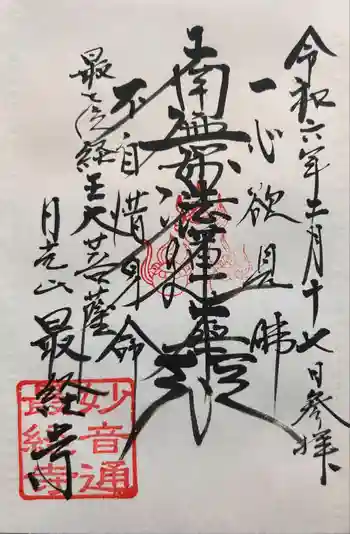 令和六年二月十七日参拝
一心欲見佛
南無妙法蓮華経
不自惜身命
最上位経王大菩薩
月光山
最経寺
妙音通
最経寺